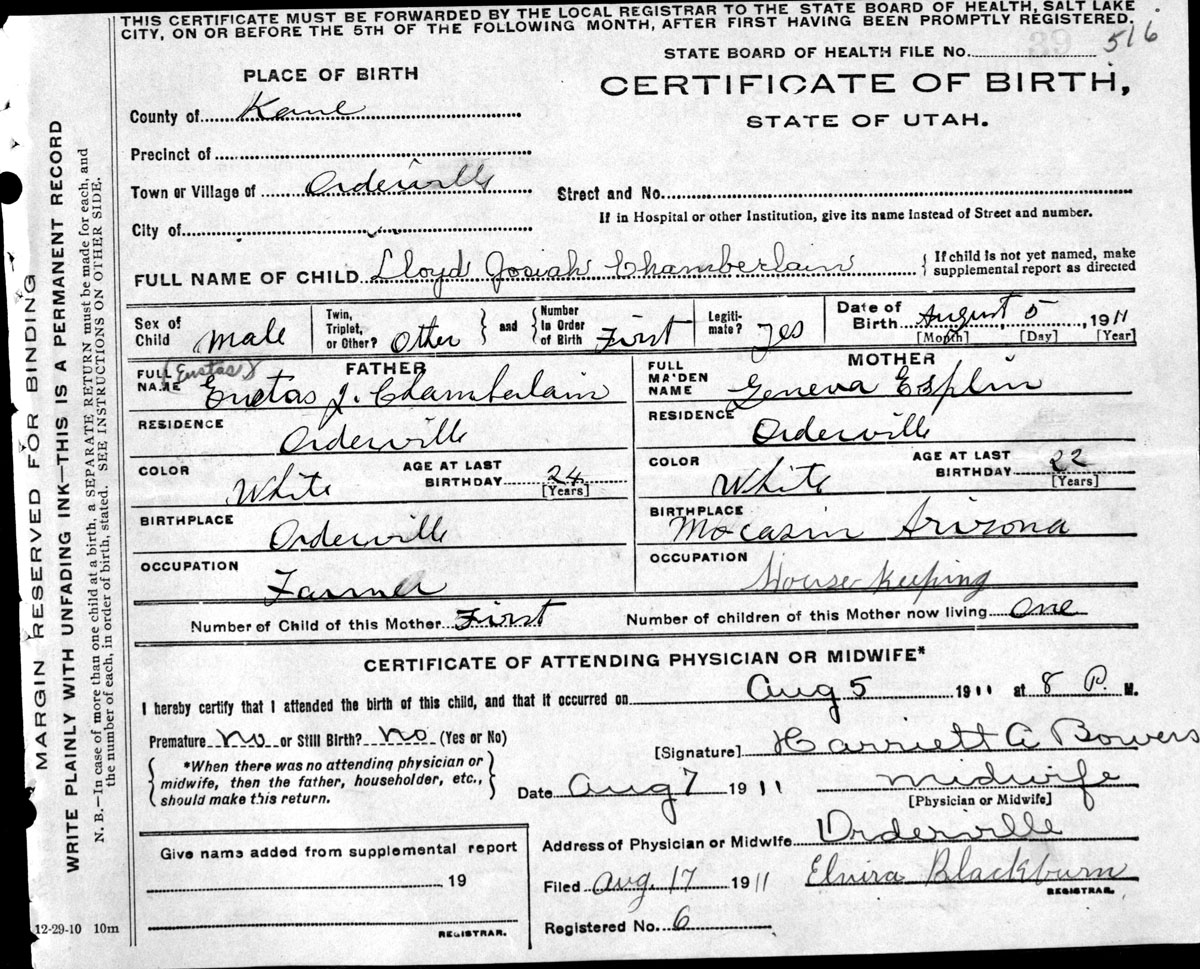 THIS CERTIFICATE MUST BE FORWARDED BY THE LOCAL REGISTRAR TO THE STATE BOARD OF HEALTH, SALT LAKE
CITY, ON OR BEFORE THE 5TH OF THE FOLLOWING MONTH, AFTER FIRST HAVING BEEN PROMPTLY REGISTERED.
STATE BOARD OF HEALTH FILE No. 516
PLACE OF BIRTH
CERTIFICATE OF BIRTH,
STATE OF UTAH.
County of Kane
Precinct of
Town or Village of Orderville
Street and No.
If in Hospital or other Institution, give its name instead of Street and number.
City of
FULL NAME OF CHILD Lloyd Josiah Chamberlain { If child is not yet named, make
supplemental report as directed
Sex of
Child Male
Twin,
Triplet,
or Other? Other
} and {
Number
in Order
of Birth First
Legiti-
mate? Yes
Date of
Birth August, 5, 1911
[Month] [Day] [Year]
FATHER
FULL
NAME (Eustas)
Eustas J. Chamberlain
RESIDENCE
Orderville
COLOR
White
AGE AT LAST
BIRTHDAY 24
[Years]
BIRTHPLACE
Orderville
OCCUPATION
Farmer
MOTHER
FULL
MAIDEN
NAME Geneva Esplin
RESIDENCE
Orderville
COLOR
White
AGE AT LAST
BIRTHDAY 22
[Years]
BIRTHPLACE
Mocasin Arizona
OCCUPATION
House Keeping
Number of Child of this Mother First Number of children of this Mother now living one
CERTIFICATE OF ATTENDING PHYSICIAN OR MIDWIFE*
I hereby certify that I attended the birth of this child, and that it occurred on Aug 5 1911 at 8 P. M.
Premature No or Still Birth? No (Yes or No)
[Signature] Harriett A Bowers
{ *When there was no attending physician or
midwife, then the father, householder, etc.,
should make this return. }
Date Aug 7 1911 Midwife
[Physician or Midwife]
Give name added from supplemental report
19
REGISTRAR.
Address of Physician or Midwife Orderville
Filed Aug. 17 1911 Elvira Blackburn
REGISTRAR.
Registered No. 6
12-29-10 10m
MARGIN RESERVED FOR BINDING
WRITE PLAINLY WITH UNFADING INK—THIS IS A PERMANENT RECORD
N. B.—In case of more than one child at a birth, a SEPARATE RETURN must be made for each, and
the number of each, in order of birth, stated. SEE INSTRUCTIONS ON OTHER SIDE.